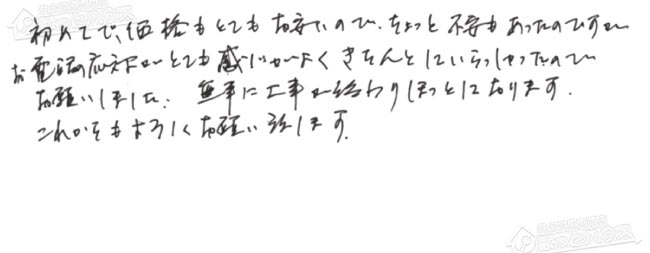 初めてで、価格もとてもお安いので、ちょっと不安もあったのですが
お電話の応対がとても感じがよくきちんとしていらっしゃったので
お願いしました。無事に工事が終わりほっとしております。
これからもよろしくお願い致します。